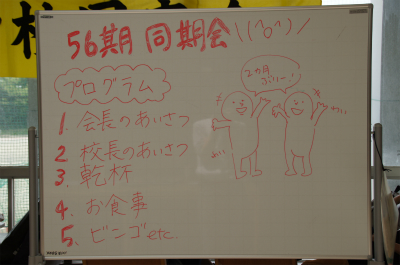 56期 同期会 \(^o^)/
プログラム
1. 会長のあいさつ
2. 校長のあいさつ
3. 乾杯
4. お食事
5. ビンゴetc.
2カ月ぶりー!
わーい